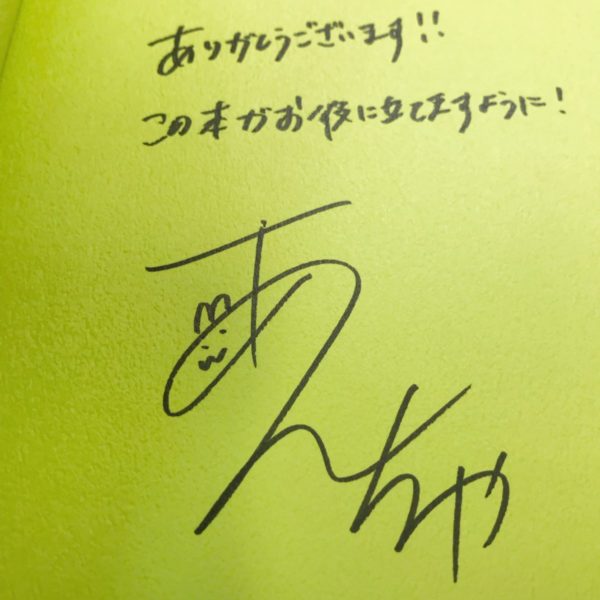 ありがとうございます!!
この本がお役に立てますように!
あんちゃ